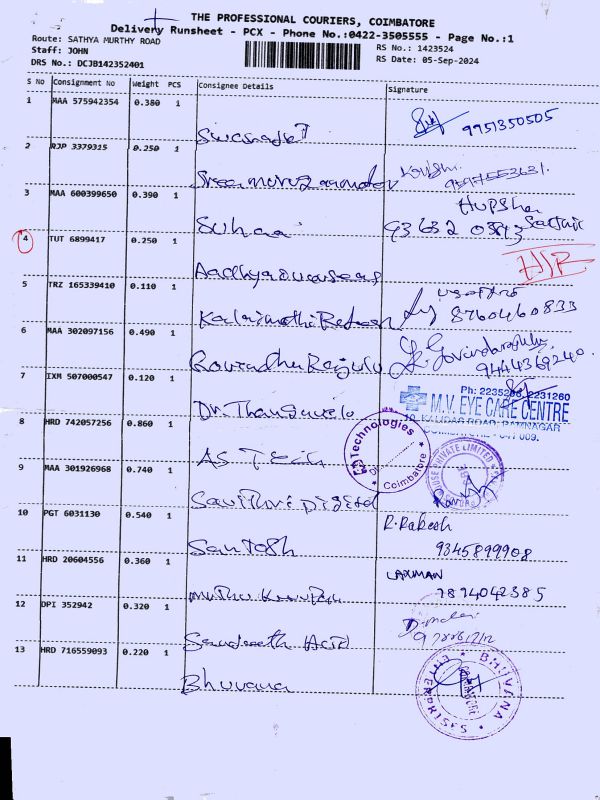 THE PROFESSIONAL COURIERS, COIMBATORE
Delivery Runsheet - PCX - Phone No.:0422-3505555 - Page No.:1
Route: SATHYA MURTHY ROAD
RS No.: 1423524
Staff: JOHN
RS Date: 05-Sep-2024
DRS No.: DCJB142352401
S No Consignment No Weight PCS Consignee Details Signature
1 MAA 575942354 0.380 1
9951350505
2 RJP 3379315 0.250 1
3 MAA 600399650 0.390 1
Suhaa
4 TUT 6899417 0.250 1
Aadhya overseas
5 TRZ 165339410 0.110 1
8760460833
6 MAA 302097156 0.490 1
9444369240
7 IXM 507000547 0.120 1
Dr. Thangavelu
Ph: 2231260
M.V. EYE CARE CENTRE
KALIDAS ROAD, RAMNAGAR
8 HRD 742057256 0.860 1
AS Tech
Technologies
Coimbatore
9 MAA 301926968 0.740 1
Savithri Digital
PRIVATE LIMITED
10 PGT 6031130 0.540 1
Santosh
R. Rakesh
9345899908
11 HRD 20604556 0.360 1
LAXMAN
7894042385
12 DPI 352942 0.320 1
13 HRD 716559093 0.220 1
Bhuvana
BHUVANA ENTERPRISES